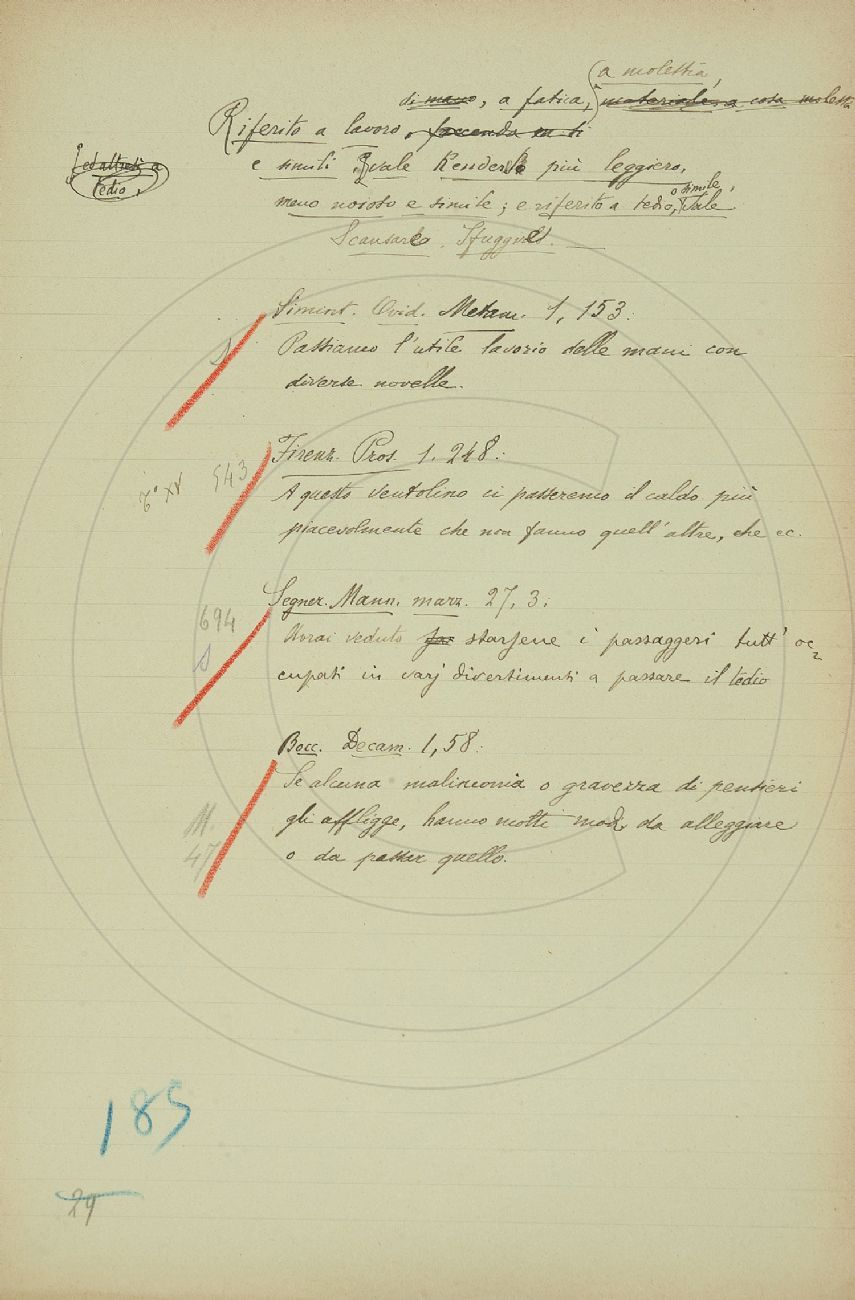 a molestia,
di mano, a fatica, materiale, a cosa molesta
Riferito a lavoro, faccenda
ed altresì a
tedio,
e simili vale Renderlo più leggiero,
o simile,
meno noioso e simile; e riferito a tedio, vale
Scansarlo, Sfuggirlo.
Simint. Ovid. Metam. 1, 153:
Passiamo l'utile lavorio delle mani con
diverse novelle.
Firenz. Pros. 1. 248:
543
A questo ventolino ci passeremo il caldo più
piacevolmente che non fanno quell'altre, che ec.
Segner. Mann. marz. 27, 3:
694
Vorai veduto starsene i passaggeri tutt' oc
cupati in varj divertimenti a passare il tedio
Bocc. Decam. 1, 58:
Se alcuna malinconia o gravezza di pensieri
M.
gli affligge, hanno molti modi da alleggiare
47
o da passar quello.
185
29